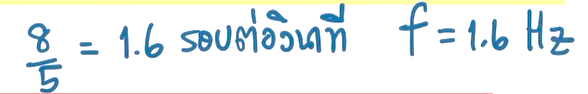 8/5 = 1.6 รอบต่อวินาที f = 1.6 Hz